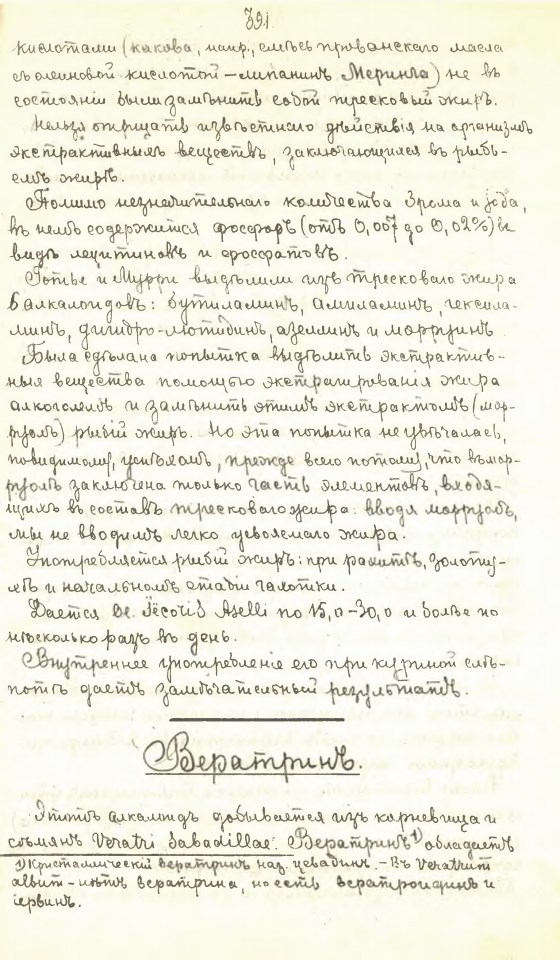 391
кислотами (какова, напр., смѣсь прованскаго масла
съ олеиновой кислотой – липанинъ Меринга) не въ
состояніи были замѣнить собой тресковый жиръ.
Нельзя отрицать извѣстнаго дѣйствія на организмъ
экстрактивныхъ веществъ, заключающихся въ рыбь-
емъ жирѣ.
Помимо незначительнаго количества брома и іода,
въ немъ содержится фосфоръ (отъ 0,007 до 0,02%) въ
видѣ лецитиновъ и фосфатовъ.
Готье и Мурри выдѣлили изъ тресковаго жира
6 алкалоидовъ: бутиламинъ, амиламинъ, гексила-
минъ, дигидро-лютидинъ, азеллинъ и морруинъ.
Была сдѣлана попытка выдѣлить экстрактив-
ныя вещества помощью экстрагированія жира
алкоголемъ и замѣнить этимъ экстрактомъ (мор-
руолъ) рыбій жиръ. Но эта попытка не увѣнчалась,
повидимому, успѣхомъ, прежде всего потому, что въ мор-
руолѣ заключена только часть элементовъ, входя-
щихъ въ составъ тресковаго жира: вводя морруолъ,
мы не вводимъ легко усвояемаго жира.
Употребляется рыбій жиръ: при рахитѣ, золоту-
хѣ и начальномъ стадіи чахотки.
Дается Ol. Jecoris Aselli по 15,0–30,0 и болѣе по
нѣсколько разъ въ день.
Внутреннее употребленіе его при куриной слѣ-
потѣ даетъ замѣчательный результатъ.
Вератринъ.
Этотъ алкалоидъ добывается изъ корневища и
сѣмянъ Veratri Sabadillae. Вератринъ¹) обладаетъ
1) Кристаллическій вератринъ наз. цевадинъ. – Въ Veratrum
album – нѣтъ вератрина, но есть вератроидинъ и
іервинъ.